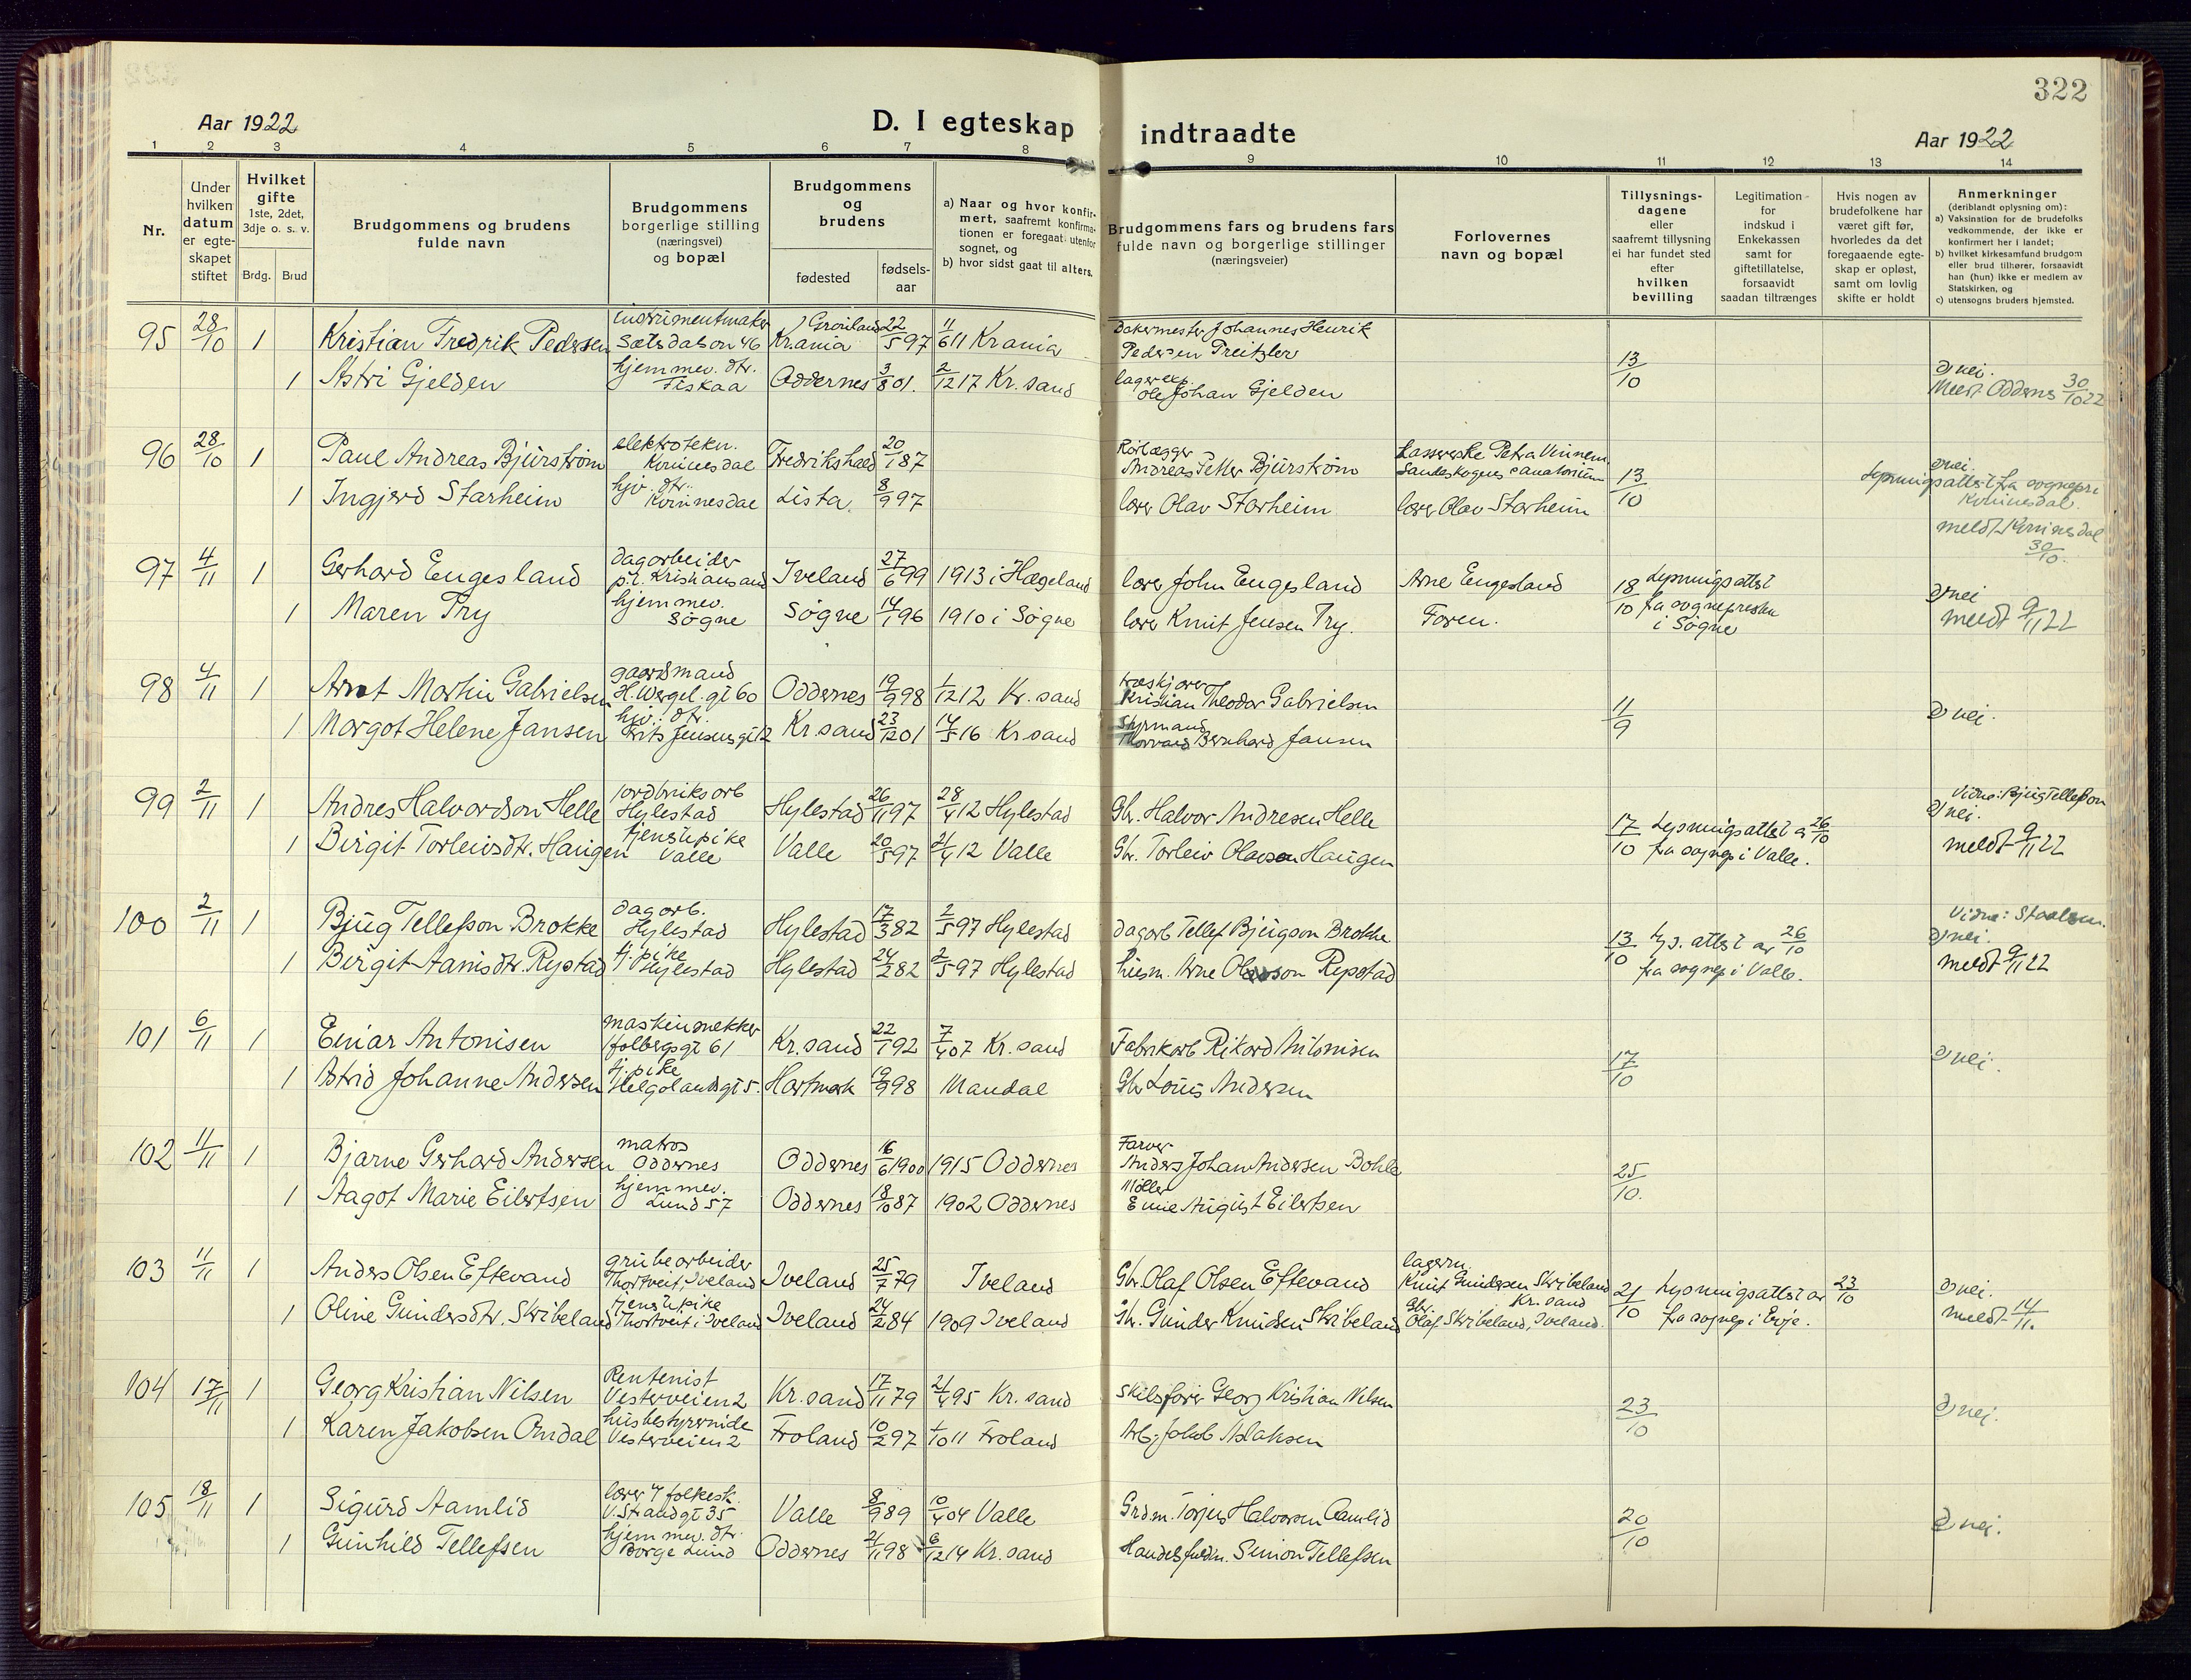 322
Aar 1922
D. I egteskap indtraadte
Aar 1922
1 2 3 4 5 6 7 8 9 10 11 12 13 14
Nr.
Under hvilken datum er egte-skapet stiftet
Hvilket gifte 1ste, 2det, 3dje o. s. v.
Brdg. Brud
Brudgommens og brudens fulde navn
Brudgommens borgerlige stilling (næringsvei) og bopæl
Brudgommens og brudens
fødested
fødsels-aar
a) Naar og hvor konfir-mert, saafremt konfirma-tionen er foregaat utenfor sognet, og
b) hvor sidst gaat til alters.
Brudgommens fars og brudens fars fulde navn og borgerlige stillinger (næringsveier)
Forlovernes navn og bopæl
Tillysnings-dagene eller saafremt tillysning ei har fundet sted efter hvilken bevilling
Legitimation for indskud i Enkekassen samt for giftetillatelse, forsaavidt saadan tiltrænges
Hvis nogen av brudefolkene har været gift før, hvorledes da det foregaaende egte-skap er opløst, samt om lovlig skifte er holdt
Anmerkninger (deriblandt oplysning om):
a) Vaksination for de brudefolks vedkommende, der ikke er konfirmert her i landet;
b) hvilket kirkesamfund brudgom eller brud tilhører, forsaavidt han (hun) ikke er medlem av Statskirken, og
c) utensogns bruders hjemsted.
95 28/10 1 Kristian Fredrik Pedersen Instrumentmaker Sætsdalsvn 46 Grønland Kr.ania 22/5 97 11/6 11 Krania Bakermester Johannes Henrik Pedersen Treitzler 13/10
1 Astri Gjelden hjemmev. dtr. Fiskaa Oddernes 3/8 01. 2/12 17 Kr. sand lagerexp. Ole Johan Gjelden nei. Meldt Oddernes 30/10 22
96 28/10 1 Paul Andreas Bjürström elektrotekn. Kvinesdal Fredrikshald 20/1 87 Rørlægger Andreas Petter Bjürström Kassererske Petra Vinnem Sandeskogens sanatorium 13/10
1 Ingjerd Starheim hjv. dtr. Kvinnesdal Lista. 8/9 97 lærer Olav Starheim lærer Olav Starheim nei. Lysningsattest fra sognepr i Kvinnesdal. meldt Kvinnesdal 30/10.
97 4/11 1 Gerhard Engesland dagarbeider p.t. Kristiansand Iveland 27/6 99 1913 i Hægeland lærer John Engesland Arne Engesland 18/10 Lysningsattest fra sognepresten i Søgne
1 Maren Try hjemmev. Søgne Søgne 14/1 96 1910 i Søgne lærer Knut Jensen Try. Faren. nei meldt 9/11 22
98 4/11 1 Arnt Martin Gabrielsen gaardsmand H. Wergel. gt 60 Oddernes 19/9 98 1/12 12 Kr. sand Kristian Theodor Gabrielsen 11/9
1 Margot Helene Jansen hjv. dtr. Frits Jensens gt 12 Kr. sand 23/12 01 14/5 16 Kr sand Styrmand Thorvald Bernhard Jansen nei.
99 2/11 1 Andres Halvordson Helle jordbruksarb Hylestad Hylestad 26/11 97 28/4 12 Hylestad Gbr. Halvor Andresen Helle 17/10 Lysningsattest av 26/10 fra sognepr i Valle. Vidne: Bjug Tellefson
1 Birgit Torleivsdtr. Haugen tjenestepike Valle Valle 20/5 97 21/4 12 Valle Gbr. Torleiv Olavson Haugen nei. meldt 9/11 22
100 2/11 1 Bjug Tellefson Brokke dagarb. Hylestad Hylestad 17/3 82 2/5 97 Hylestad dagarb Tellef Bjugson Brokke 13/10 lys. attest av 26/10 fra sognepr i Valle.
1 Birgit Aanisdtr. Rystad tj. pike Hylestad Hylestad 24/2 82 2/5 97 Hylestad husm. Arne Olavson Rystad nei. meldt 9/11 22
101 6/11 1 Einar Antonisen maskinsnekker Holbergsgt 61 Kr. sand 22/1 92 7/4 07 Kr. sand Fabrikarb Rikard Antonisen 17/10
1 Astrid Johanne Andersen tj. pike Helgolandsgt 5. Hartmark 19/9 98 Mandal Gbr Louis Andersen nei.
102 11/11 1 Bjarne Gerhard Andersen matros Oddernes Oddernes 16/6 1900 1915 Oddernes Farver Anders Johan Andersen Bohle 25/10.
1 Aagot Marie Eilertsen hjemmev. Lund 57 Oddernes 18/10 87 1902 Oddernes Møller August Eilertsen
103 11/11 1 Anders Olsen Eftevand grubearbeider Thortveit, Iveland Iveland 25/7 79 Iveland Gbr. Olaf Olsen Eftevand lagerm. Knut Gundersen Skribeland Kr. sand 21/10 Lysningsattest av 23/10 fra sognepr i Evje.
1 Oline Gundersdtr. Skribeland tjenestepike Thortveit i Iveland Iveland 24/2 84 1909 Iveland Gbr. Gunder Knudsen Skribeland Gbr. Olaf Skribeland, Iveland. nei. meldt 14/11.
104 17/11 1 Georg Kristian Nilsen Rentenist Vesterveien 2 Kr. sand 17/11 79 21/4 95 Kr. sand Georg Kristian Nilsen 23/10
1 Karen Jakobsen Omdal husbestyrerinde Vesterveien 2 Froland 10/2 97 1/10 11 Froland Arb. Jakob Aslaksen nei.
105 18/11 1 Sigurd Aamlid lærer v folkesk. V. Strandgt 35 Valle 8/9 89 10/4 04 Valle Grdm. Torjus Halvorsen Aamlid 20/10
1 Gunhild Tellefsen hjemmev. dtr. Borge Lund Oddernes 21/11 98 6/12 14 Kr. sand Handelsfuldm. Simon Tellefsen nei.